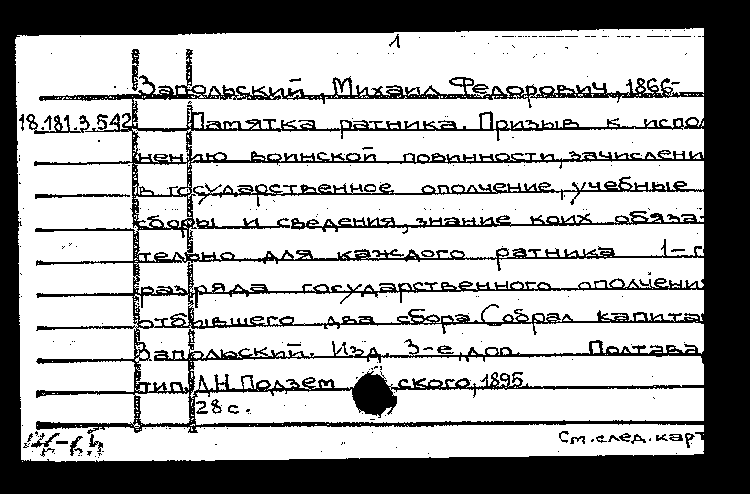 1
Запольский, Михаил Федорович, 1866-
18.181.3.542 Памятка ратника. Призыв к испол
нению воинской повинности, зачислени
в государственное ополчение, учебные
сборы и сведения, знание коих обяза-
тельно для каждого ратника 1-г
разряда государственного ополчени
отбывшего два сбора. Собрал капитан
Запольский. Изд. 3-е, доп. Полтава,
тип. Л.Н. Подзем ского, 1895.
28 с.
См. след. карт